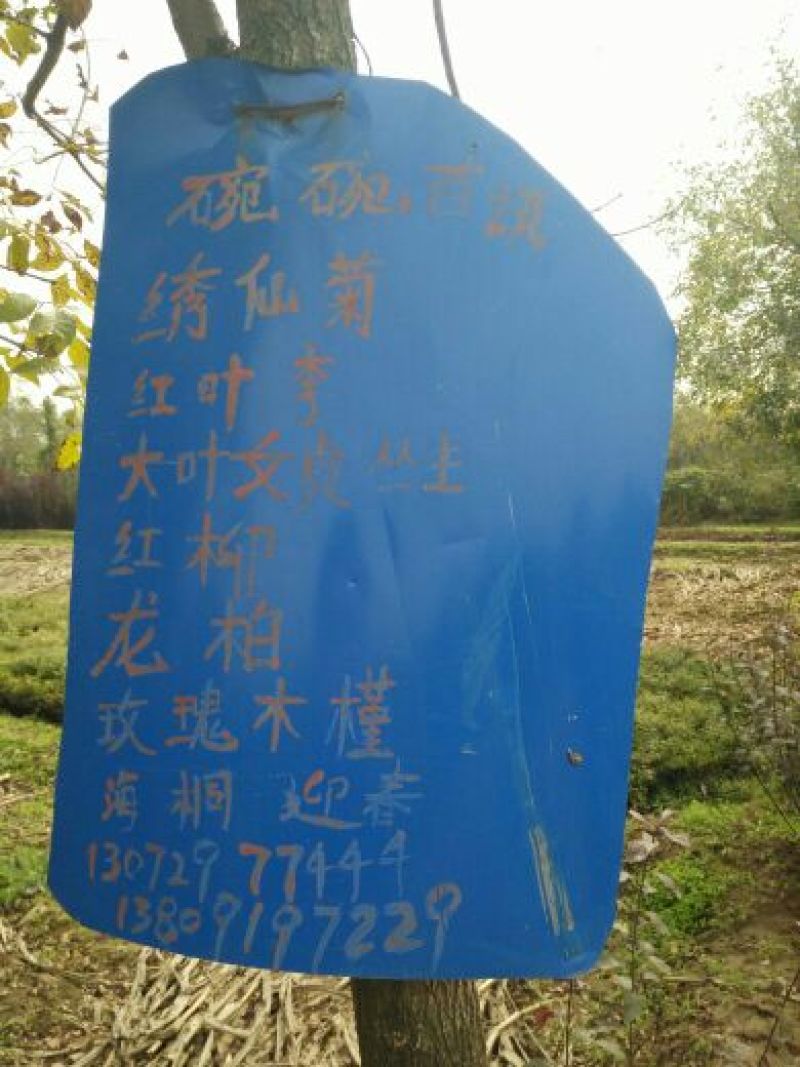 碗碗 百
绣仙菊
红叶李
大叶女贞丛生
红柳
龙柏
玫瑰木槿
海桐 迎春
13072977444
13809197229